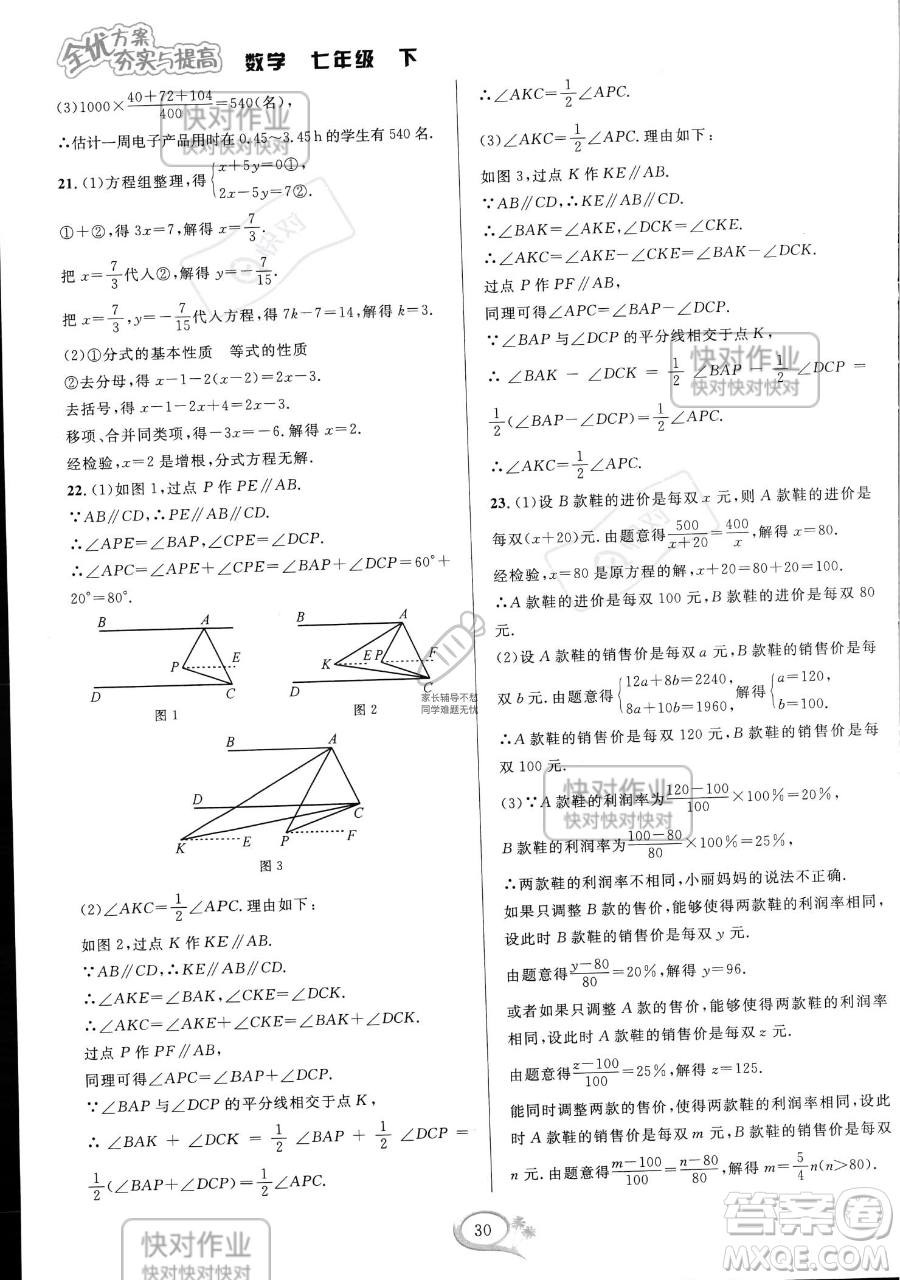 全优方案
夯实与提高 数学 七年级 下
(3)1000×(40+72+104)/400=540(名),
∴估计一周电子产品用时在 0.45~3.45 h 的学生有 540 名.
21. (1)方程组整理,得{x+5y=0①, 2x-5y=7②.
①+②,得 3x=7,解得 x=7/3.
把 x=7/3代人②,解得 y=-7/15.
把 x=7/3,y=-7/15代人方程,得 7k-7=14,解得 k=3.
(2)①分式的基本性质 等式的性质
②去分母,得 x-1-2(x-2)=2.
去括号,得 x-1-2x+4=2.
移项、合并同类项,得-3x=-6.解得 x=2.
经检验,x=2 是增根,分式方程无解.
22. (1)如图 1,过点 P 作 PE∥AB.
∵AB∥CD,∴PE∥AB∥CD.
∴∠APE=∠BAP,∠CPE=∠DCP.
∴∠APC=∠APE+∠CPE=∠BAP+∠DCP=60°+
20°=80°.
B A
P E
D C
图 1
B A
K E P F
D C
图 2
B A
D C
K E P F
图 3
(2)∠AKC=1/2∠APC.理由如下:
如图 2,过点 K 作 KE∥AB.
∵AB∥CD,∴KE∥AB∥CD.
∴∠AKE=∠BAK,∠CKE=∠DCK.
∴∠AKC=∠AKE+∠CKE=∠BAK+∠DCK.
过点 P 作 PF∥AB,
同理可得∠APC=∠BAP+∠DCP.
∵∠BAP与∠DCP的平分线相交于点 K,
∴ ∠BAK + ∠DCK = 1/2 ∠BAP + 1/2 ∠DCP =
1/2(∠BAP+∠DCP)=1/2∠APC.
∴∠AKC=1/2∠APC.
(3)∠AKC=1/2∠APC.理由如下:
如图 3,过点 K 作 KE∥AB.
∵AB∥CD,∴KE∥AB∥CD.
∴∠BAK=∠AKE,∠DCK=∠CKE.
∴∠AKC=∠AKE-∠CKE=∠BAK-∠DCK.
过点 P 作 PF∥AB,
同理可得∠APC=∠BAP-∠DCP.
∵∠BAP与∠DCP的平分线相交于点 K,
∴ ∠BAK - ∠DCK = 1/2 ∠BAP - 1/2 ∠DCP =
1/2(∠BAP-∠DCP)=1/2∠APC.
∴∠AKC=1/2∠APC.
23. (1)设 B 款鞋的进价是每双 x 元,则 A 款鞋的进价是
每双(x+20)元.由题意得500/(x+20)=400/x,解得 x=80.
经检验,x=80是原方程的解,x+20=80+20=100.
∴A 款鞋的进价是每双 100 元,B 款鞋的进价是每双 80
元.
(2)设 A 款鞋的销售价是每双 a 元,B 款鞋的销售价是每
双 b 元.由题意得{12a+8b=2240, 8a+10b=1960,解得{a=120, b=100.
∴A 款鞋的销售价是每双 120 元,B 款鞋的销售价是每
双 100 元.
(3)∵A 款鞋的利润率为(120-100)/100×100%=20%,
B 款鞋的利润率为(100-80)/80×100%=25%,
∴两款鞋的利润率不相同,小丽妈妈的说法不正确.
如果只调整 B 款的售价,能够使得两款鞋的利润率相同,
设此时 B 款鞋的销售价是每双 y 元.
由题意得(y-80)/80=20%,解得 y=96.
或者如果只调整 A 款的售价,能够使得两款鞋的利润率
相同,设此时 A 款鞋的销售价是每双 z 元.
由题意得(z-100)/100=25%,解得 z=125.
能同时调整两款的售价,使得两款鞋的利润率相同,设此
时 A 款鞋的销售价是每双 m 元,B 款鞋的销售价是每双
n 元.由题意得(m-100)/100=(n-80)/80,解得 m=5/4 n(n>80).
30
快对作业
快对快对快对
快对
家长辅导不愁
同学难题无忧
快对作业
快对快对快对
快对
快对作业
快对快对快对
快对作业
快对快对快对
答案卷
MXQE.COM